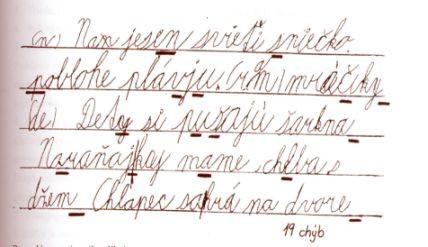 (n) Nam jesen svieti snječko.
noblohe plávju. (rm) mráčiky
(de) Dety si pušajú šarkna
Naraňajkaj mame chleba s
džem Chlapec sahrá na dvore
19 chýb